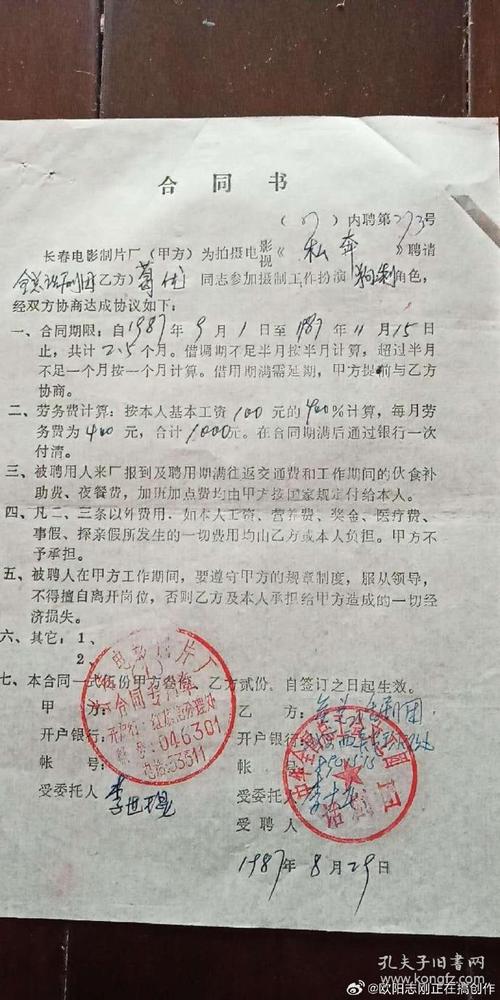 合同书
(87)内聘第273号
长春电影制片厂(甲方)为拍摄电影视《私奔》聘请
全总话剧团乙方)葛优同志参加摄制工作扮演 角色,
经双方协商达成协议如下:
一、合同期限:自1987年9月1日至1987年11月15日
止,共计2.5个月。借调期不足半月按半月计算,超过半月
不足一个月按一个月计算。借用期满需延期,甲方提前与乙方
协商。
二、劳务费计算:按本人基本工资100元的400%计算,每月劳
务费为400元,合计1000元。在合同期满后通过银行一次
付清。
三、被聘用人来厂报到及聘用期满往返交通费和工作期间的伙食补
助费、夜餐费,加班加点费均由甲方按国家规定付给本人。
四、凡二、三条以外费用,如本人工资、营养费、奖金、医疗费、
事假、探亲假所发生的一切费用均由乙方或本人负担。甲方不
予承担。
五、被聘人在甲方工作期间,要遵守甲方的规章制度,服从领导,
不得擅自离开岗位,否则乙方及本人承担给甲方造成的一切经
济损失。
六、其它:1、
2、
七、本合同一式伍份甲方叁份,乙方贰份,自签订之日起生效。
甲方:
开户银行:
帐号:
受委托人
电影制片厂
合同专用章
开户行:红旗街办理处
帐号:046301
电话:53311
李世
乙方:全总话剧团
开户银行:
帐号:
受委托人
受聘人
话剧团
1987年8月29日
孔夫子旧书网
@欧阳志刚正在搞创作